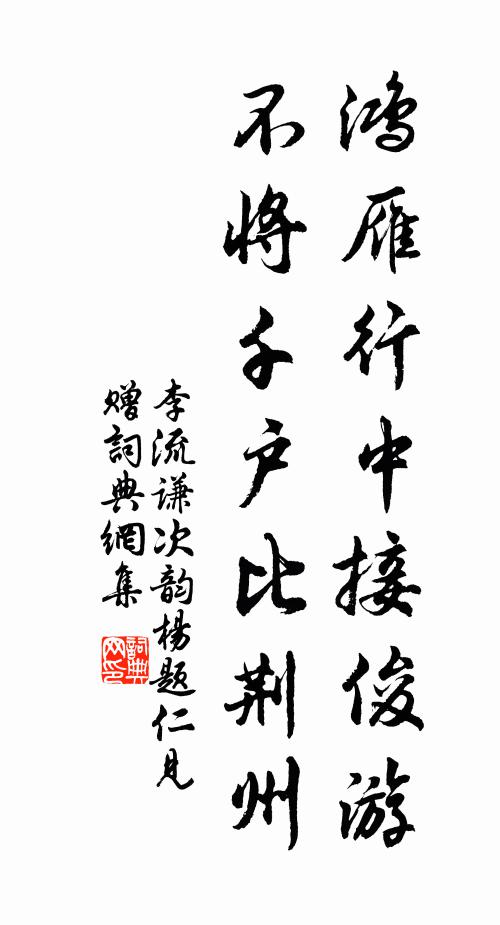 鸿雁行中接俊游
不将千户比荆州
李流谦次韵杨题仁见
赠詞典網集
詞典
网印